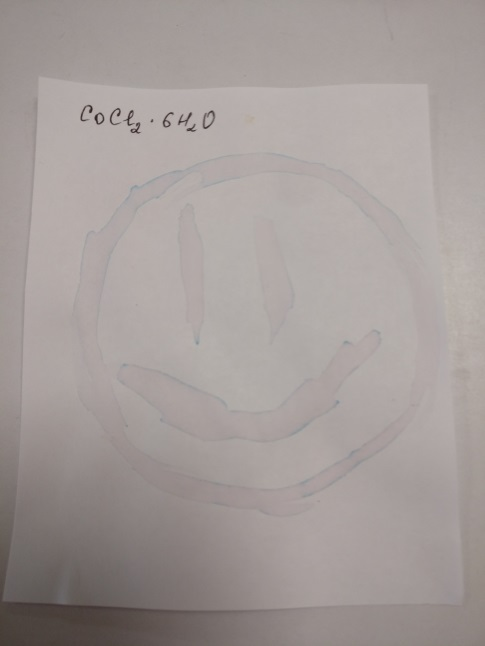 CoCl₂ · 6H₂O